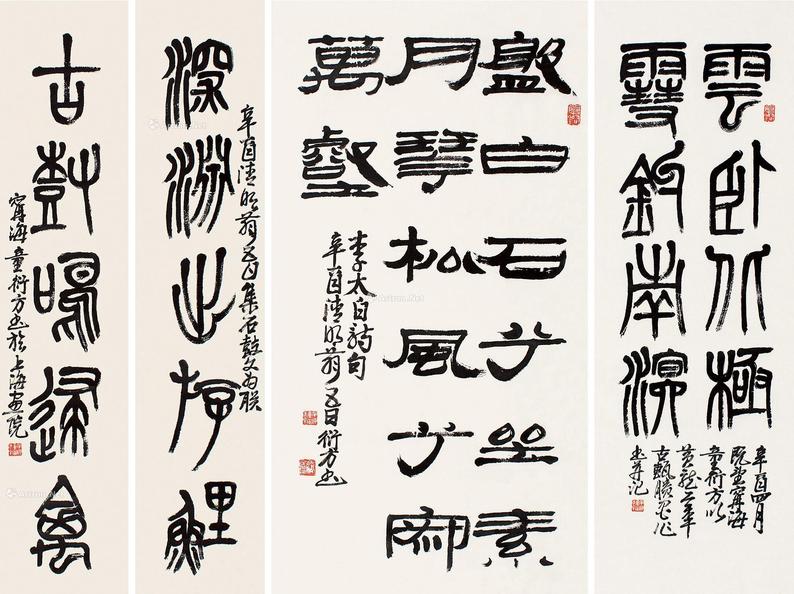 雲臥北極
雪釣南溟
辛酉四月
既望寧海
童衍方以
黃龍二年
盤白石兮坐素
月琴松風兮寂
萬壑
李太白詩句
辛酉清明前五日衍方書
深淵出游鯉
辛酉清明前五日集石鼓文為联
古樹鳴歸禽
甯海童衍方書於上海畫院